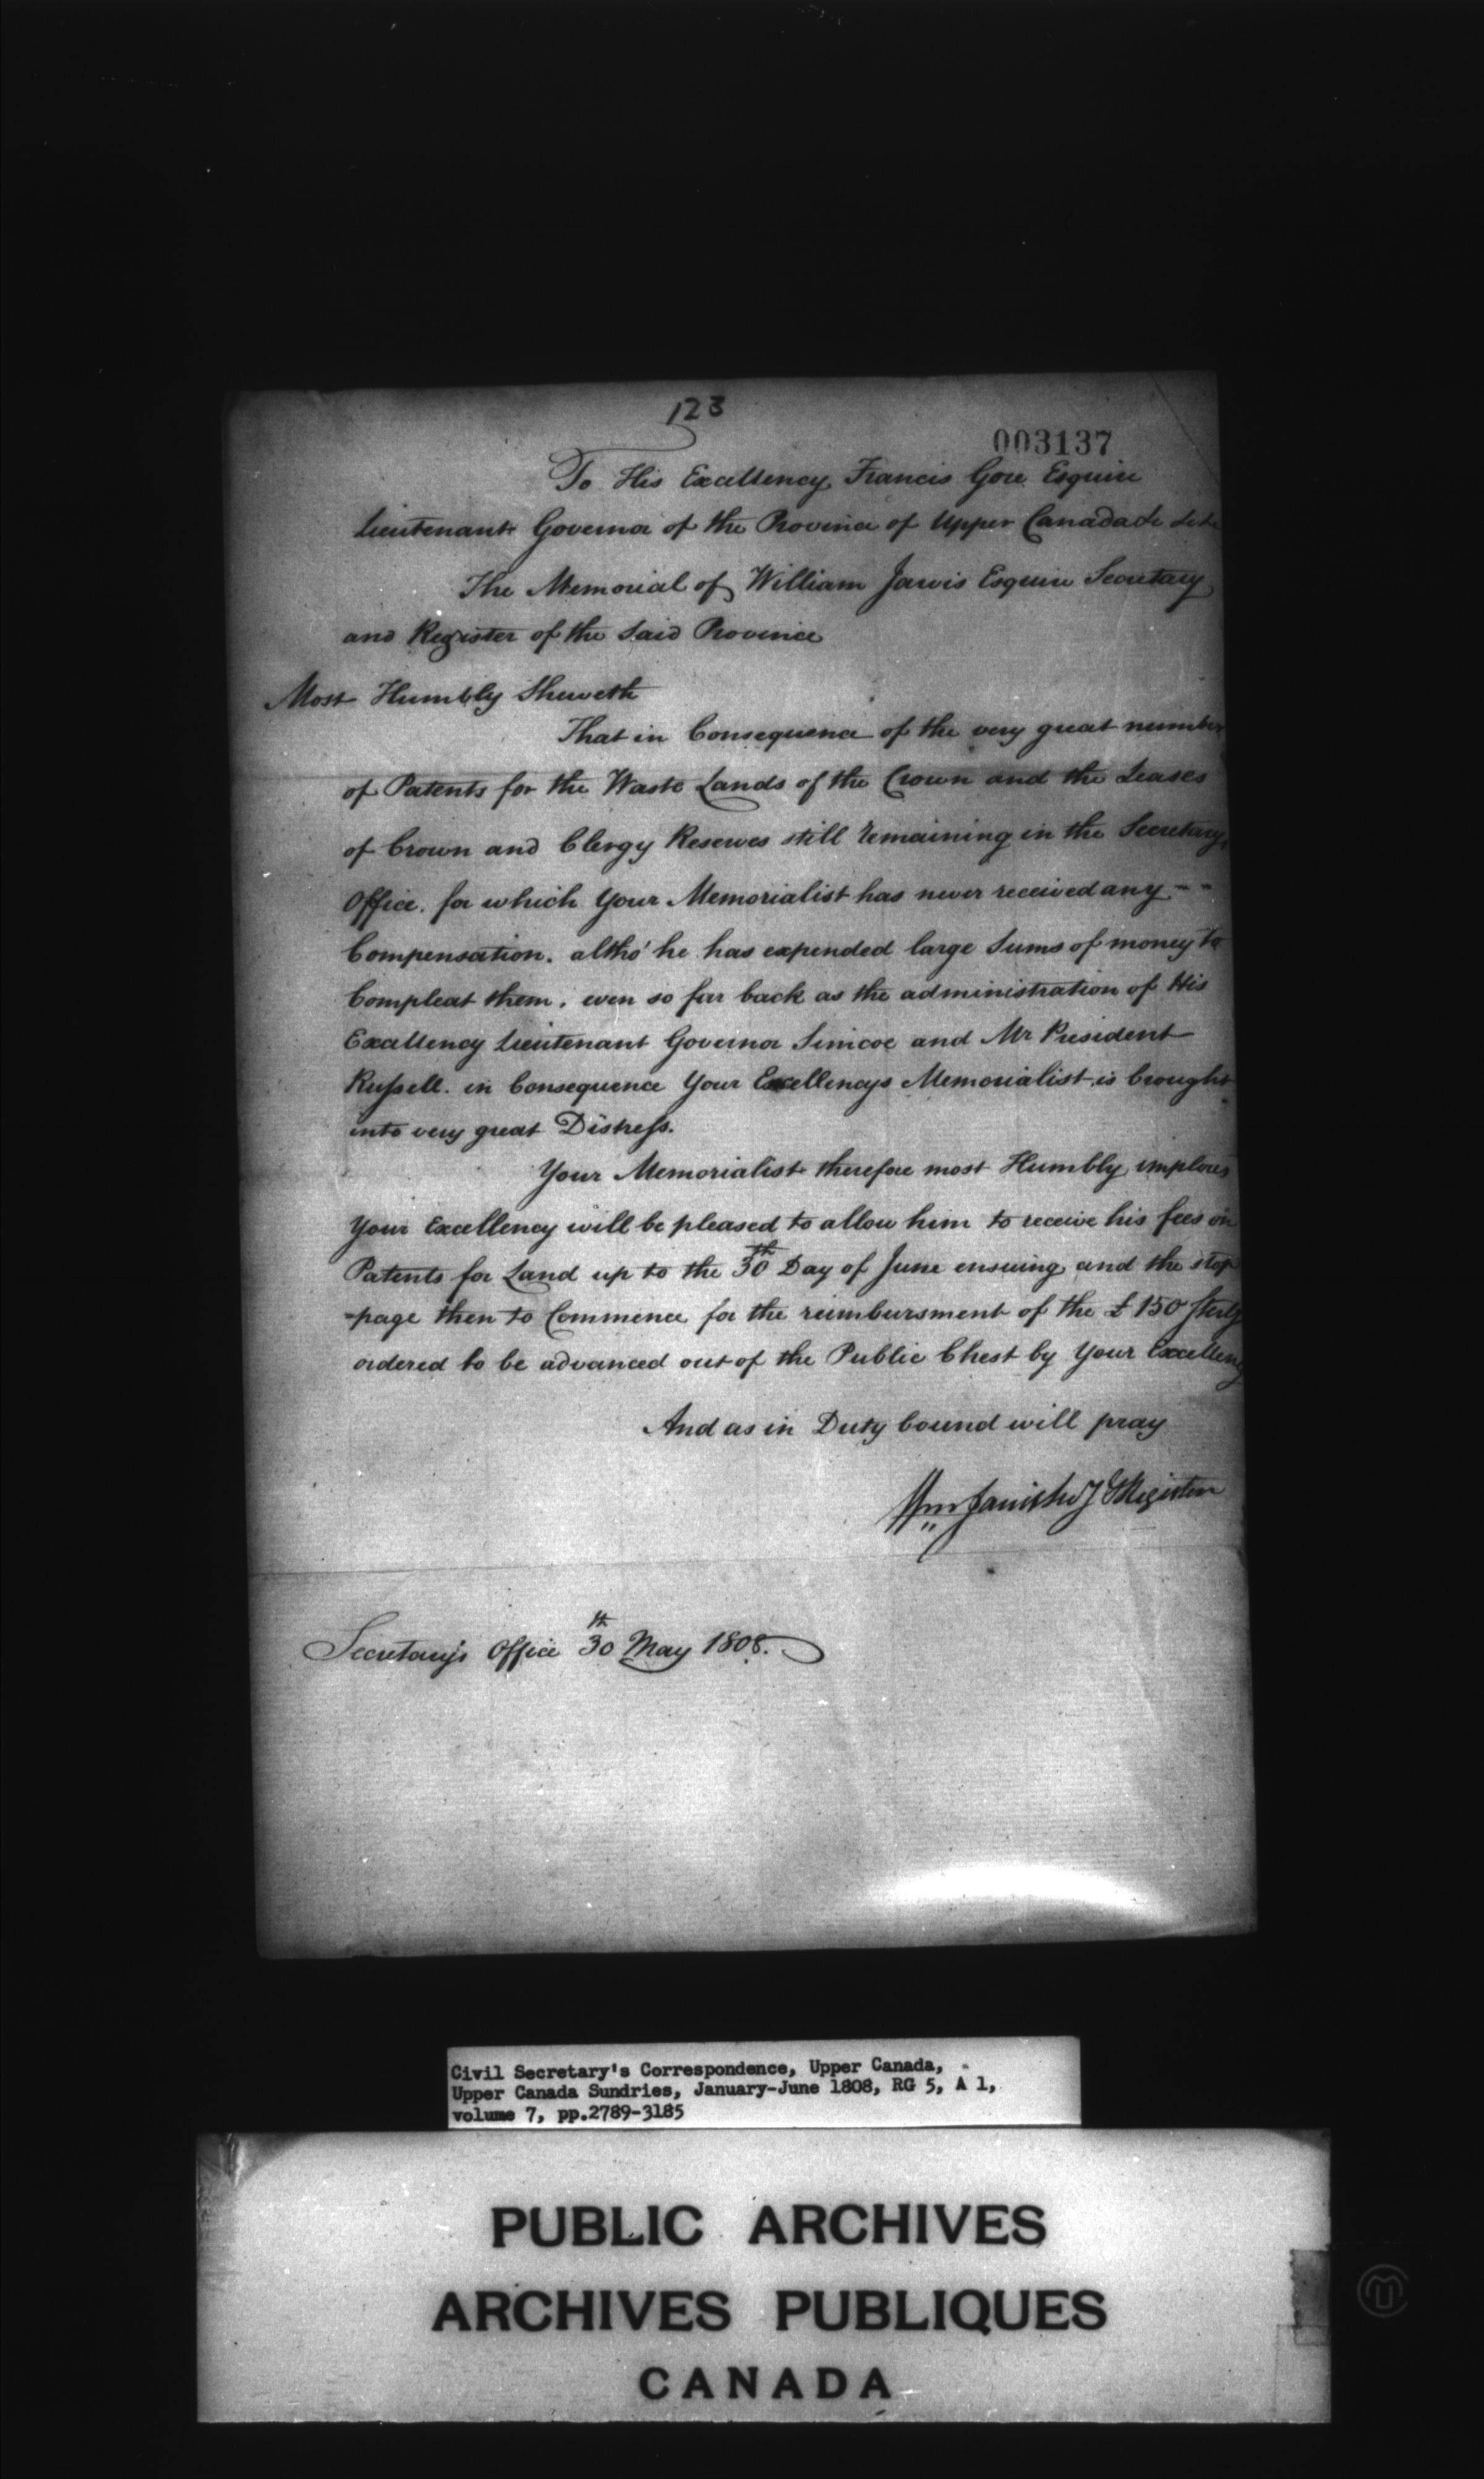 123
003137
To His Excellency Francis Gore Esquire
Lieutenant Governor of the Province of Upper Canada &c &c
The Memorial of William Jarvis Esquire Secretary
and Register of the Said Province
Most Humbly Sheweth
That in Consequence of the very great number
of Patents for the Waste Lands of the Crown and the Leases
of Crown and Clergy Reserves still remaining in the Secretarys
Office. for which Your Memorialist has never received any - -
Compensation. altho' he has expended large Sums of money to
Compleat them, even so far back as the administration of His
Excellency Lieutenant Governor Simcoe and Mr President
Russell. in Consequence Your Excellencys Memorialist is brought
into very great Distress.
Your Memorialist therefore most Humbly implores
Your Excellency will be pleased to allow him to receive his fees on
Patents for Land up to the 30th Day of June ensuing and the stop
-page then to Commence for the reimbursment of the £150 Sterlg
ordered to be advanced out of the Public Chest by Your Excellency
And as in Duty bound will pray
Wm Jarvis Secy & Register
Secretary's Office 30th May 1808.
Civil Secretary's Correspondence, Upper Canada,
Upper Canada Sundries, January-June 1808, RG 5, A 1,
volume 7, pp.2789-3185
PUBLIC ARCHIVES
ARCHIVES PUBLIQUES
CANADA